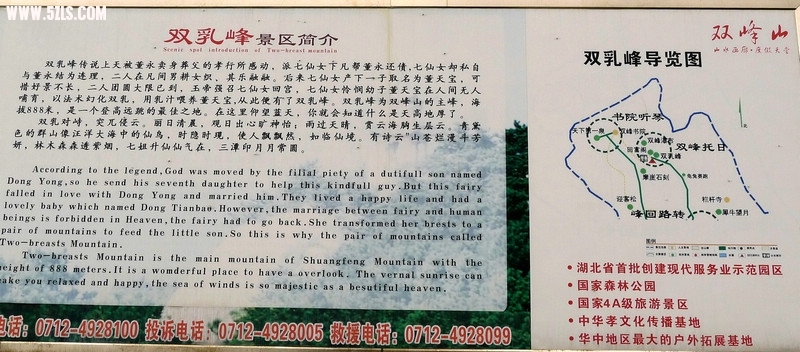 www.5ZLS.com
双乳峰景区简介
Scenic spot introduction of Two-breast mountain
双乳峰传说上天被董永卖身葬父的孝行所感动，派七仙女下凡帮董永还债，七仙女却私自
与董永结为连理，二人在凡间男耕女织、其乐融融。后来七仙女产下一子取名为董天宝，可
惜好景不长，二人团圆大限已到，玉帝强召七仙女回宫，七仙女怜悯幼子董天宝在人间无人
哺育，以法术幻化双乳，用乳汁喂养董天宝，从此便有了双乳峰。双乳峰为双峰山的主峰，海
拔888米，是一个登高远眺的最佳之地。在这里仰望蓝天，你就会知道什么是天高地厚了。
双乳对峙，突兀侵云。丽日清晨，观日出心旷神怡；雨过天晴，赏云海胸生层云。青黛
色的群山像汪洋大海中的仙鸟，时隐时现，使人飘飘然，如临仙境。有诗云"山苍烂漫斗芳
妍，林木森森逶紫烟，七姐升仙仙气在，三潭印月月常圆。
According to the legend,God was moved by the filial piety of a dutifull son named
Dong Yong,so he send his seventh daughter to help this kindfull guy.But this fairy
falled in love with Dong Yong and married him.They lived a happy life and had a
lovely baby which named Dong Tianbao.However,the marriage between fairy and human
beings is forbidden in Heaven,the fairy had to go back.She transformed her brests to a
pair of mountains to feed the little son.So this is why the pair of mountains called
Two-breasts Mountain.
Two-breasts Mountain is the main mountain of Shuangfeng Mountain with the
height of 888 meters.It is a wonderful place to have a overlook. The vernal sunrise can
make you relaxed and happy,the sea of winds is so majestic as a besutiful heaven.
电话：0712-4928100 投诉电话：0712-4928005 救援电话：0712-4928099
双峰山
双乳峰导览图
书院听琴
天下第一泉
双峰书院
双峰瀑布
双峰托日
迎宾阁
双乳峰
摩崖石刻
龟兔赛跑
迎客松
枉杆寺
峰回路转
犀牛望月
图例
•湖北省首批创建现代服务业示范园区
•国家森林公园
•国家4A级旅游景区
•中华孝文化传播基地
•华中地区最大的户外拓展基地